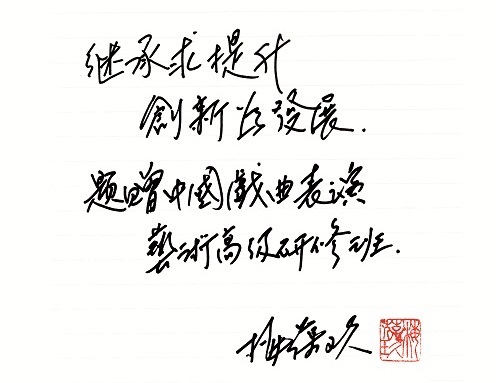 继承求提升
創新發展.
题贈中國戲曲表演
藝術高级研修班.
梅葆玖